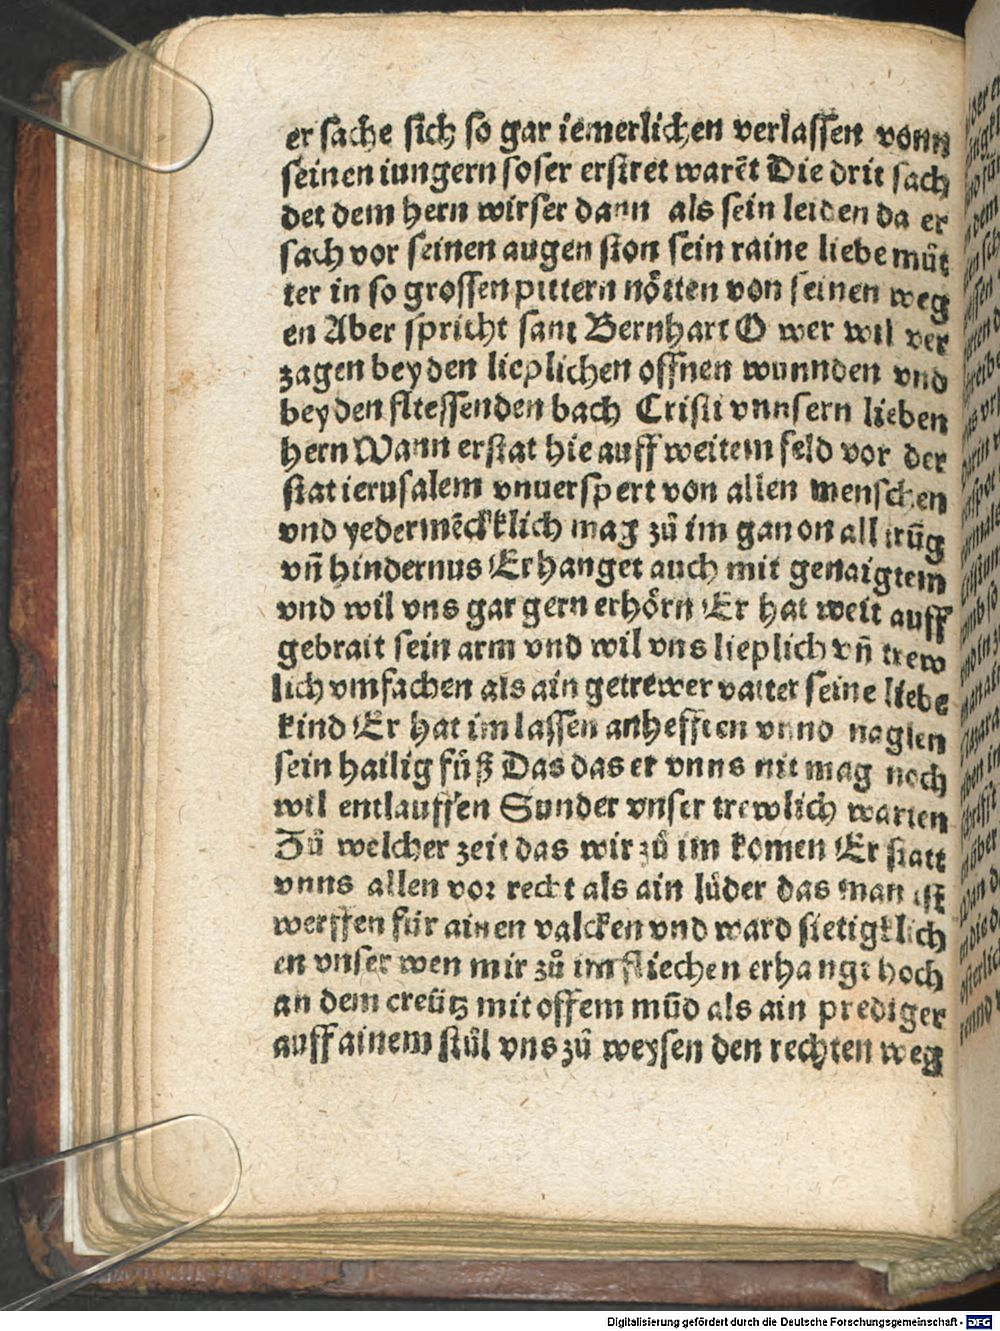 er sache sich so gar iemerlichen verlassen vonn
seinen iungern so ser erstret warēt Die drit sach
det dem hern wirser dann als sein leiden da er
sach vor seinen augen ston sein raine liebe mūt
ter in so grossen pittern nötten von seinen weg
en Aber spricht sant Bernhart O wer wil ver
zagen bey den lieplichen offnen wunnden vnd
bey den fliessenden bach Cristi vnnsern lieben
hern Wann er stat hie auff weitem feld vor der
stat ierusalem vnuerspert von allen menschen
vnd yedermēcklich mag zů im gan on all
vn̄ hindernus Er hanget auch mit genaigtem
vnd wil vns gar gern erhörn Er hat weit auff
gebrait sein arm vnd wil vns lieplich vn̄ trew
lich vmfachen als ain getrewer vatter seine liebe
kind Er hat im lassen anhefften vnnd naglen
sein hailig fůß Das das er vnns nit mag noch
wil entlauffen Sunder vnser trewlich warten
Zů welcher zeit das wir zů im komen Er statt
vnns allen vor recht als ain lůder das man ist
werffen für ainen valcken vnd ward stetigklich
en vnser wen mir zů im fliechen er hangt hoch
an dem creütz mit offem mūd als ain prediger
auff ainem stůl vns zů weysen den rechten weg
Digitalisierung gefördert durch die Deutsche Forschungsgemeinschaft - DFG